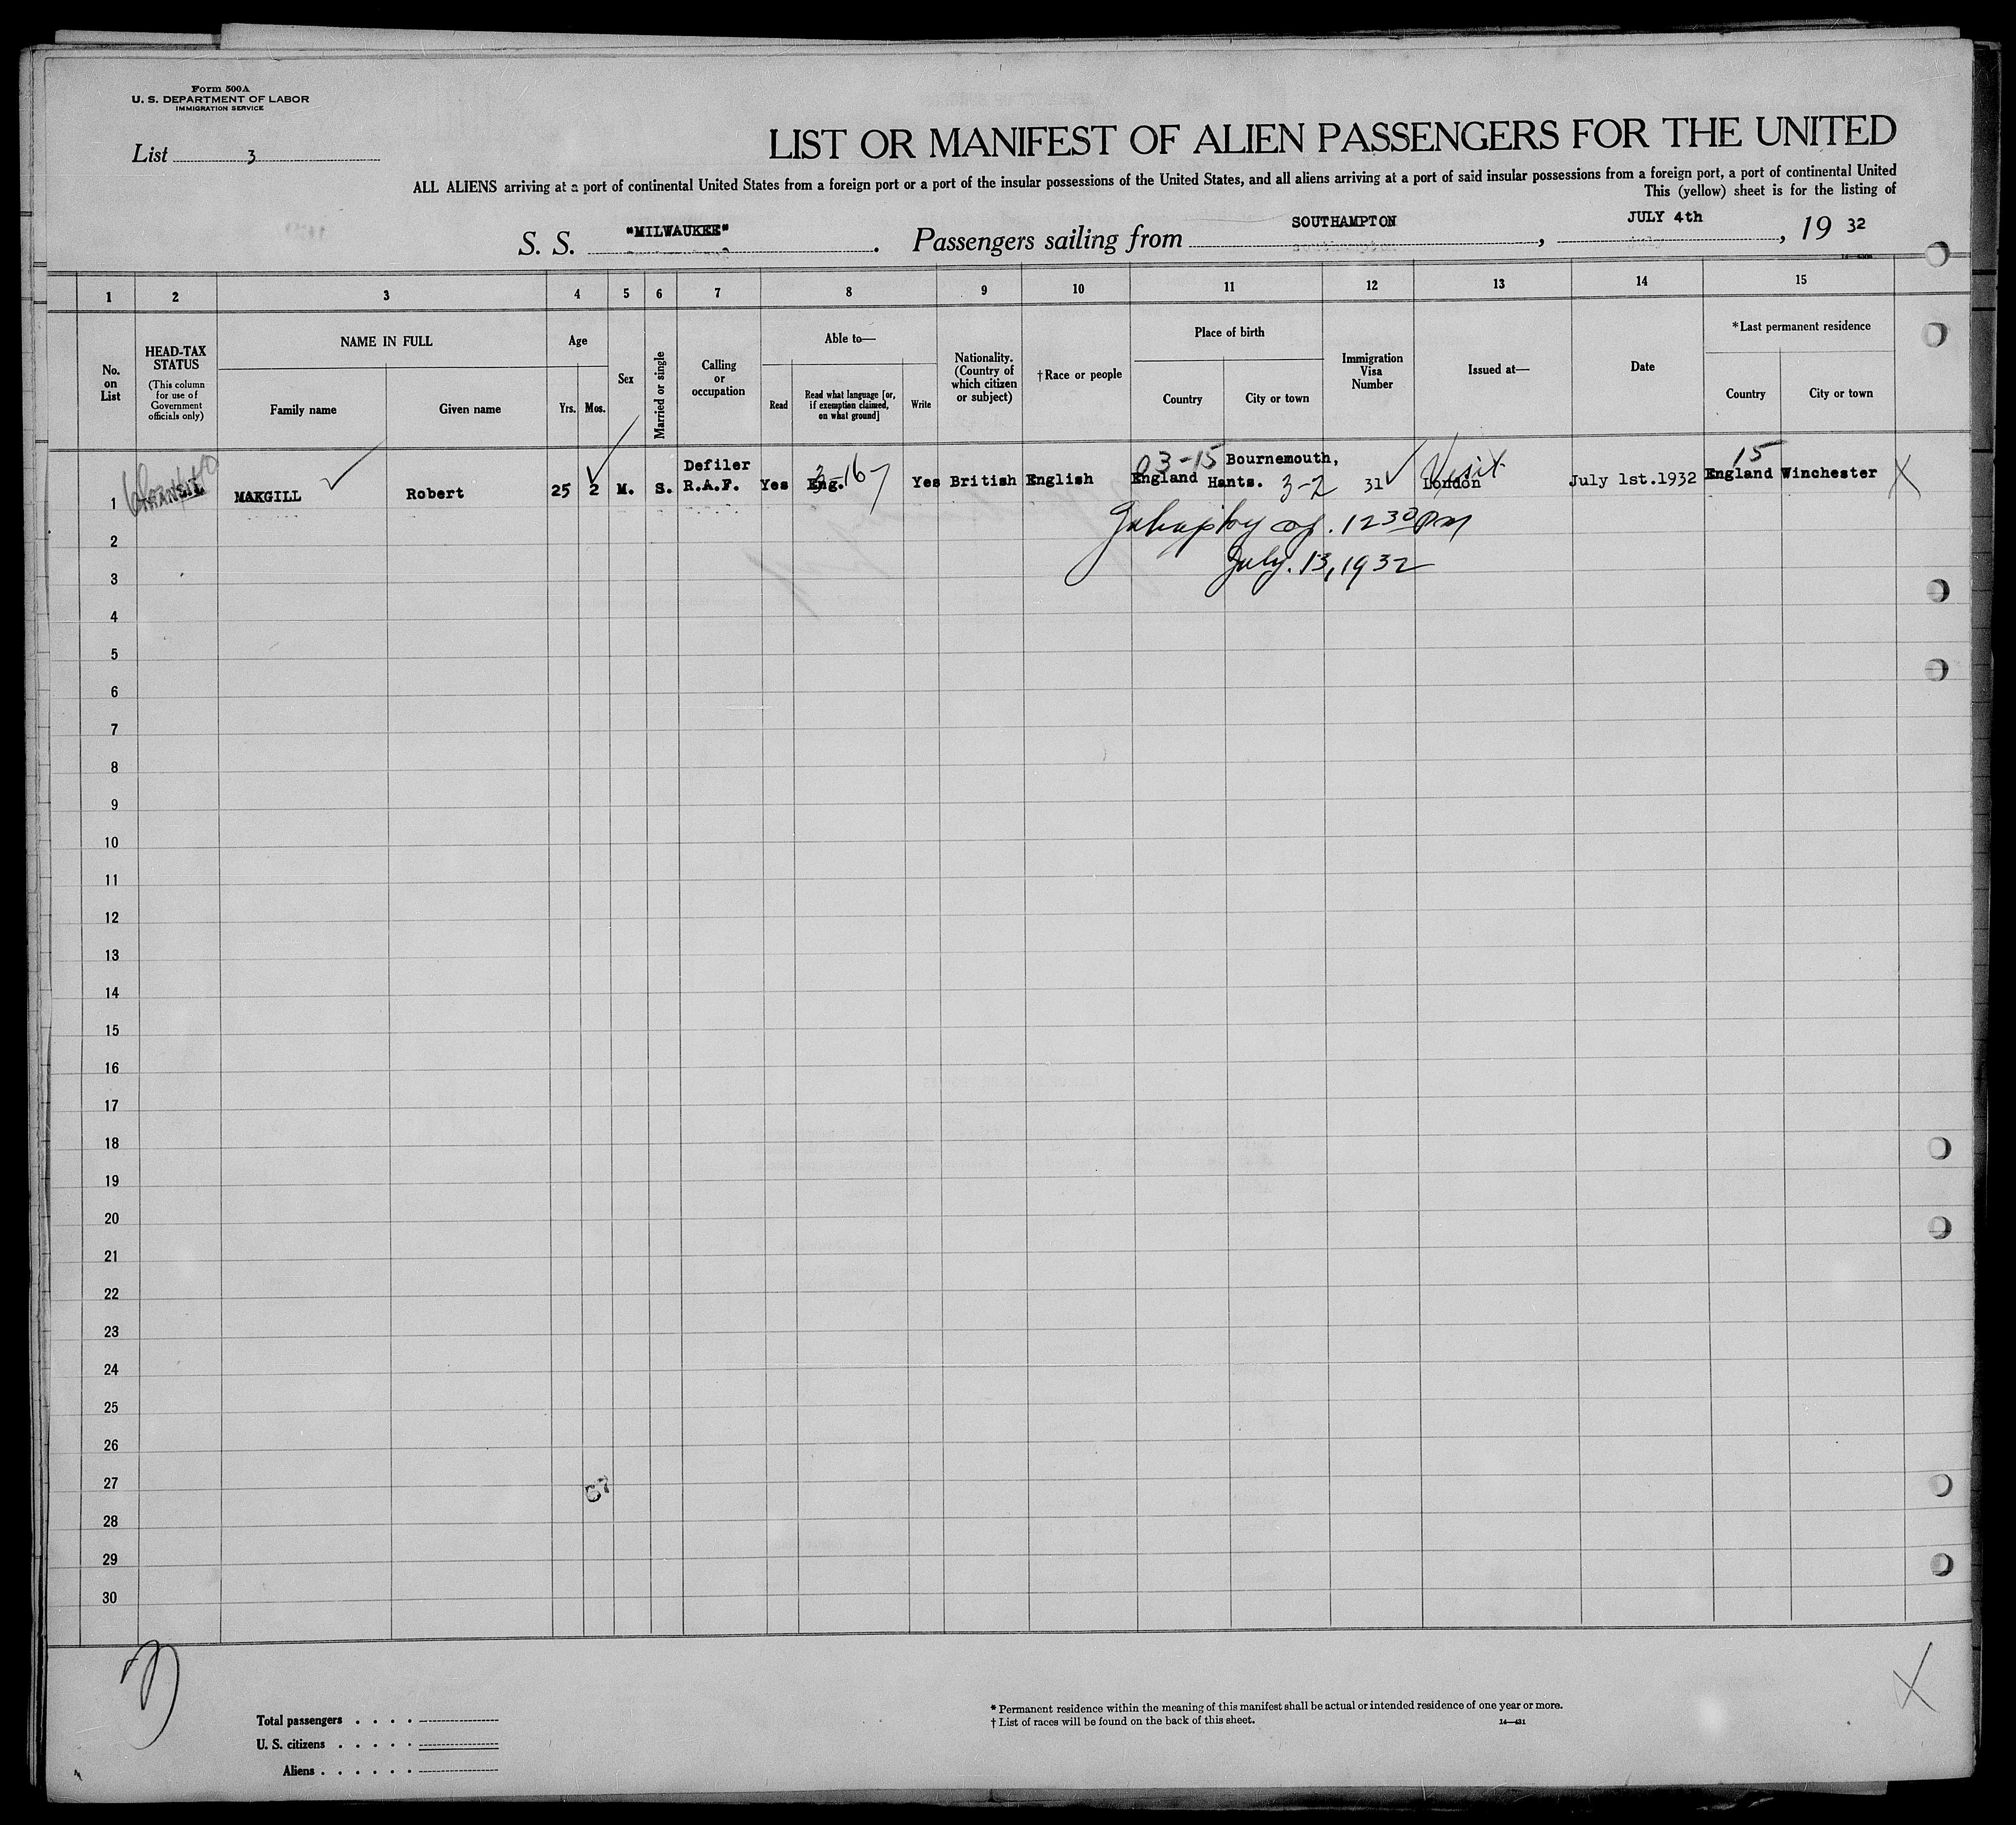 Form 500A
U. S. DEPARTMENT OF LABOR
IMMIGRATION SERVICE
List 3
LIST OR MANIFEST OF ALIEN PASSENGERS FOR THE UNITED
ALL ALIENS arriving at a port of continental United States from a foreign port or a port of the insular possessions of the United States, and all aliens arriving at a port of said insular possessions from a foreign port, a port of continental United
This (yellow) sheet is for the listing of
S. S. "MILWAUKEE" . Passengers sailing from SOUTHAMPTON , JULY 4th , 19 32
1 2 3 4 5 6 7 8 9 10 11 12 13 14 15
No. on List
HEAD-TAX STATUS
(This column for use of Government officials only)
NAME IN FULL
Family name
Given name
Age
Yrs. Mos.
Sex
Married or single
Calling or occupation
Able to—
Read
Read what language [or, if exemption claimed, on what ground]
Write
Nationality. (Country of which citizen or subject)
†Race or people
Place of birth
Country
City or town
Immigration Visa Number
Issued at—
Date
*Last permanent residence
Country
City or town
03-15 15
Defiler Bournemouth, Visit
1 TRANSIT MAKGILL Robert 25 2 M. S. R.A.F. Yes Eng. 3-167 Yes British English England Hants. 3-2 31 London July 1st.1932 England Winchester X
2 1230 PM
3 July. 13, 1932
4
5
6
7
8
9
10
11
12
13
14
15
16
17
18
19
20
21
22
23
24
25
26
27
28
29
30
Total passengers . . . .
U. S. citizens . . . . .
Aliens . . . . . .
* Permanent residence within the meaning of this manifest shall be actual or intended residence of one year or more.
† List of races will be found on the back of this sheet.
X